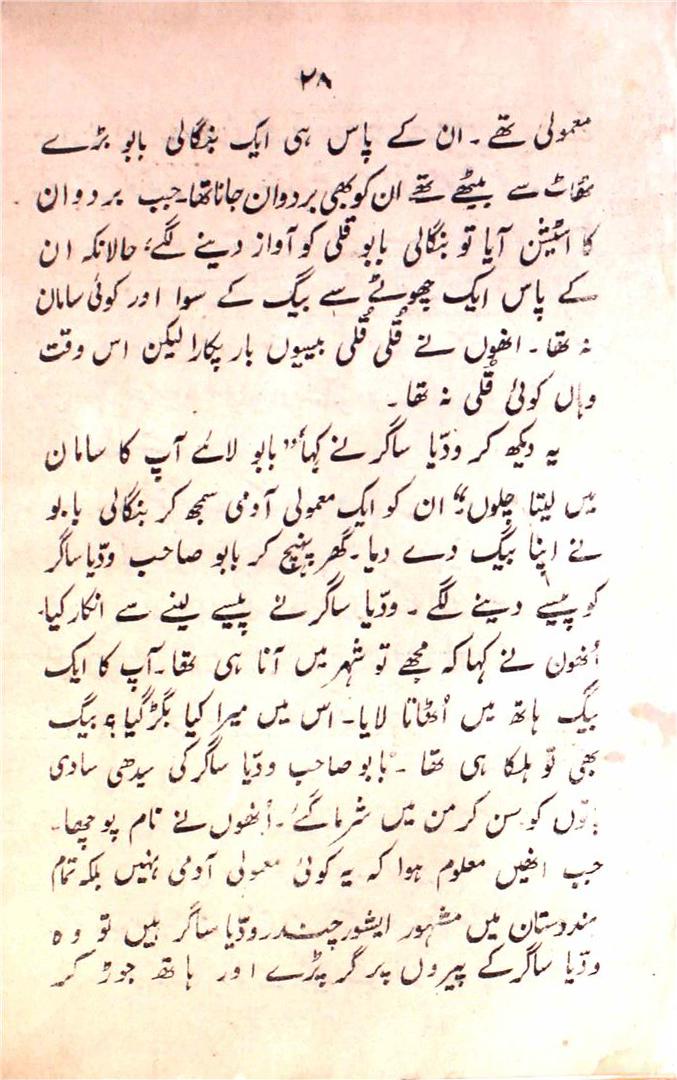 ۲۸
معمولی تھے۔ ان کے پاس ہی ایک بنگالی بابو بڑے
ٹھاٹ سے بیٹھے تھے ان کو بھی بردوان جانا تھا۔ جب بردوان
کا اسٹیشن آیا تو بنگالی بابو قلی کو آواز دینے لگے، حالانکہ ان
کے پاس ایک چھوٹے سے بیگ کے سوا اور کوئی سامان
نہ تھا۔ انھوں نے قُلی قُلی بیسیوں بار پکارا لیکن اس وقت
وہاں کوئی قُلی نہ تھا۔
یہ دیکھ کر ودّیا ساگر نے کہا “بابو لائے آپ کا سامان
میں لیتا چلوں؟” ان کو ایک معمولی آدمی سمجھ کر بنگالی بابو
نے اپنا بیگ دے دیا۔ گھر پہنچ کر بابو صاحب ودّیا ساگر
کو پیسے دینے لگے۔ ودّیا ساگر نے پیسے لینے سے انکار کیا۔
اُنھون نے کہا کہ مجھے تو شہر میں آنا ہی تھا۔ آپ کا ایک
بیگ ہاتھ میں اُٹھاتا لایا۔ اس میں میرا کیا بگڑ گیا؟ بیگ
بھی تو ہلکا ہی تھا۔” بابو صاحب ودّیا ساگر کی سیدھی سادی
باتوں کو سن کر من میں شرما گئے۔ اُنھوں نے نام پوچھا۔
جب انھیں معلوم ہوا کہ یہ کوئی معمولی آدمی نہیں بلکہ تمام
ہندوستان میں مشہور ایشور چندر ودّیا ساگر ہیں تو وہ
ودّیا ساگر کے پیروں پر گر پڑے اور ہاتھ جوڑ کر